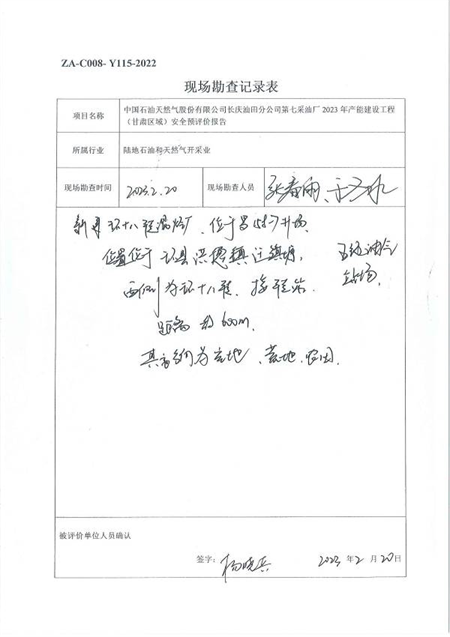 ZA-C008- Y115-2022
现场勘查记录表
项目名称
中国石油天然气股份有限公司长庆油田分公司第七采油厂 2023 年产能建设工程
（甘肃区域）安全预评价报告
所属行业
陆地石油和天然气开采业
现场勘查时间
2023.2.20
现场勘查人员
张春雨
新建环十八
位于
位置位于环县洪德镇
西侧为环十八
站场
距离约600m.
其余均为
荒地、农田.
被评价单位人员确认
签字：
杨晓兵
2023 年 2 月 20 日